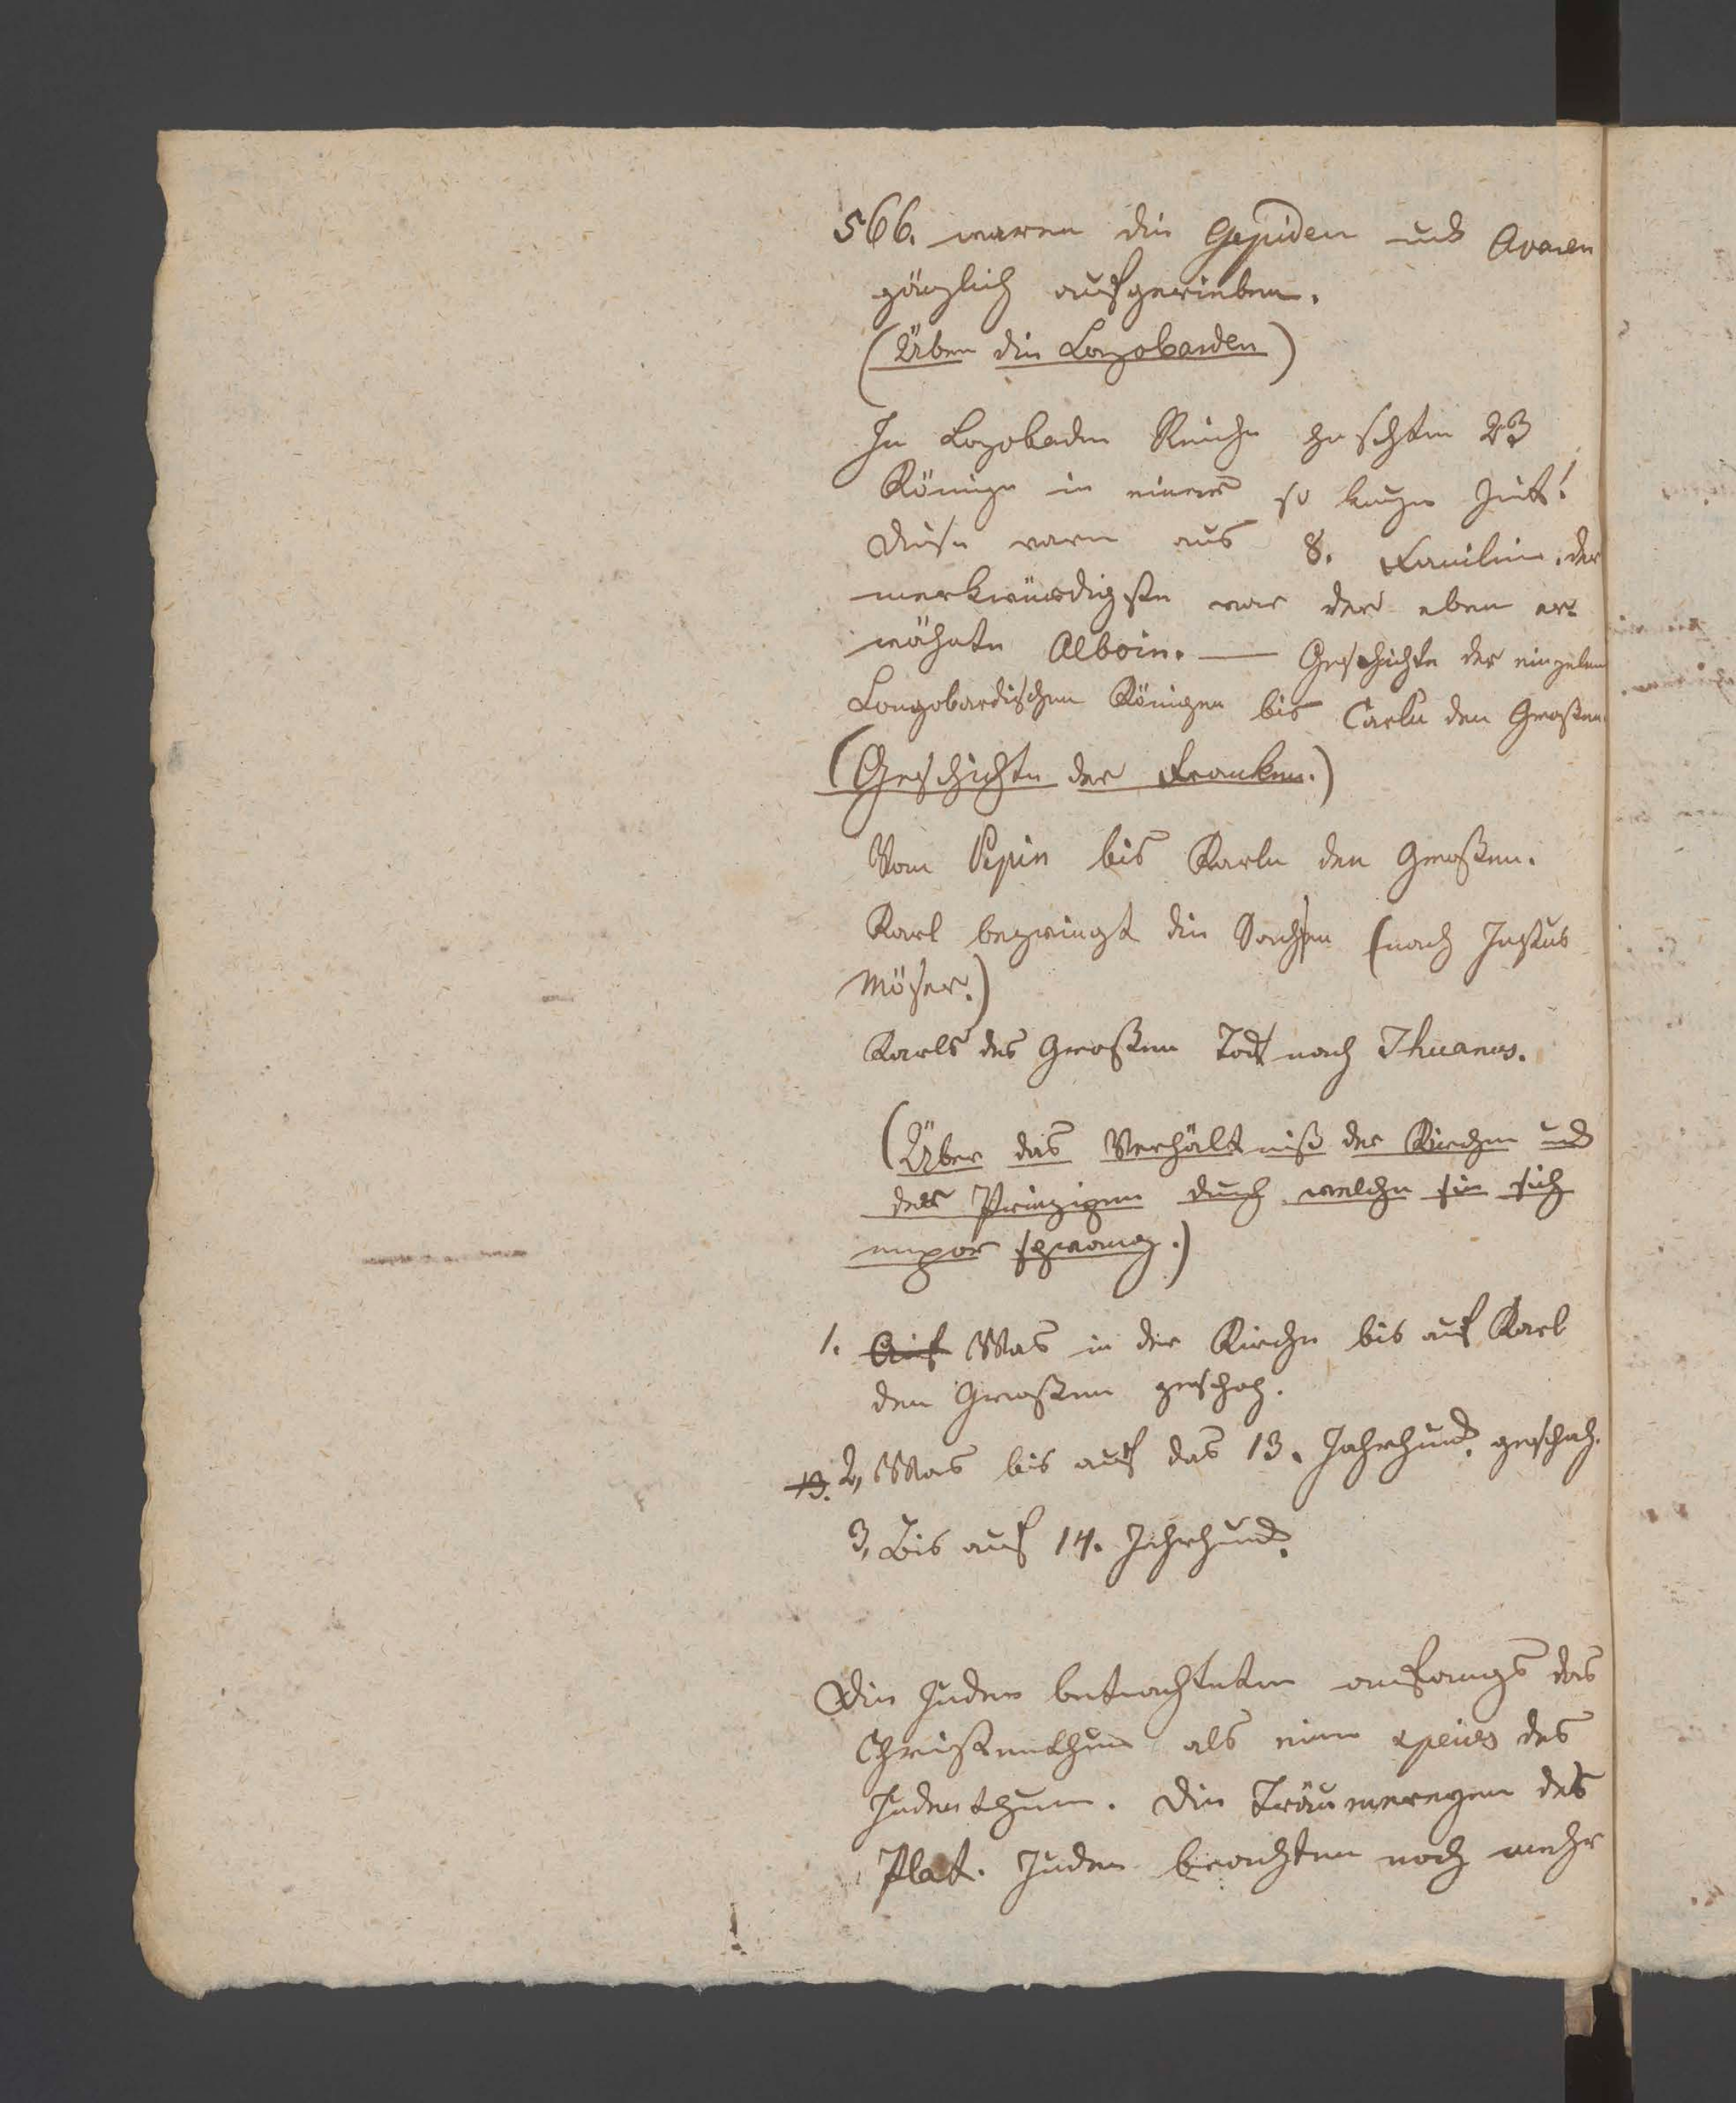 566. waren die Gepiden und Avaren
gänzlich aufgerieben.
(Über die Longobarden)
In Longobarden Reiche herschten 23
Könige in einer so kurzen Zeit!
Diese waren aus 8. Familien. der
merkwürdigste war der eben er-
wähnte Alboin. — Geschichte der einzelnen
Longobardischen Königen bis Carln den Großen.
(Geschichte der Franken.)
Vom Pipin bis Karln den Großen.
Karl bezwingt die Sachsen (nach Justus
Möser.)
Karls des Großen Tod nach Thuanus.
(Über das Verhältniß der Kirchen und
der Prinzipien durch welche sie sich
empor schwang.)
1. Auf Was in der Kirche bis auf Karl
den Großen geschah.
13. 2, Was bis auf das 13. Jahrhund. geschah.
3, Bis auf 14. Jahrhund.
Die Juden betrachteten anfangs das
Christenthum als eine species des
Judenthum. Die Träumereyen des
Plat. Juden brachten noch mehr